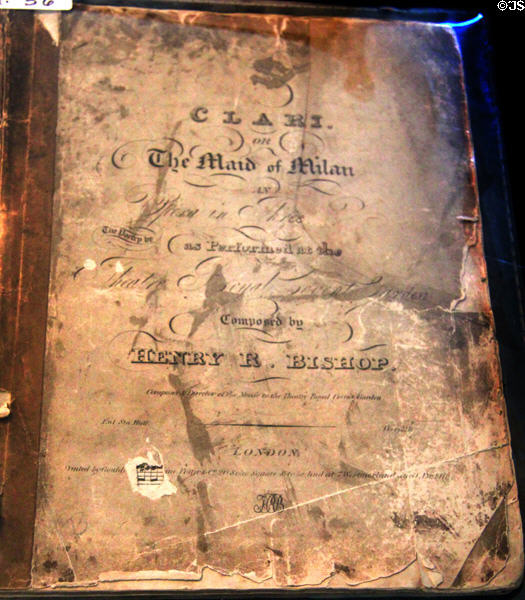 ©JS
36
CLARI.
OR
The Maid of Milan
AN
Opera in
The Poetry by
as Performed at the
Theatre Royal Covent Garden
Composed by
HENRY R. BISHOP.
Composer & Director of the Music to the Theatre Royal Covent Garden
Ent. Sta. Hall.
LONDON
Printed by Goulding
Soho Square & to be had at 7 Westmorland Street, Dublin